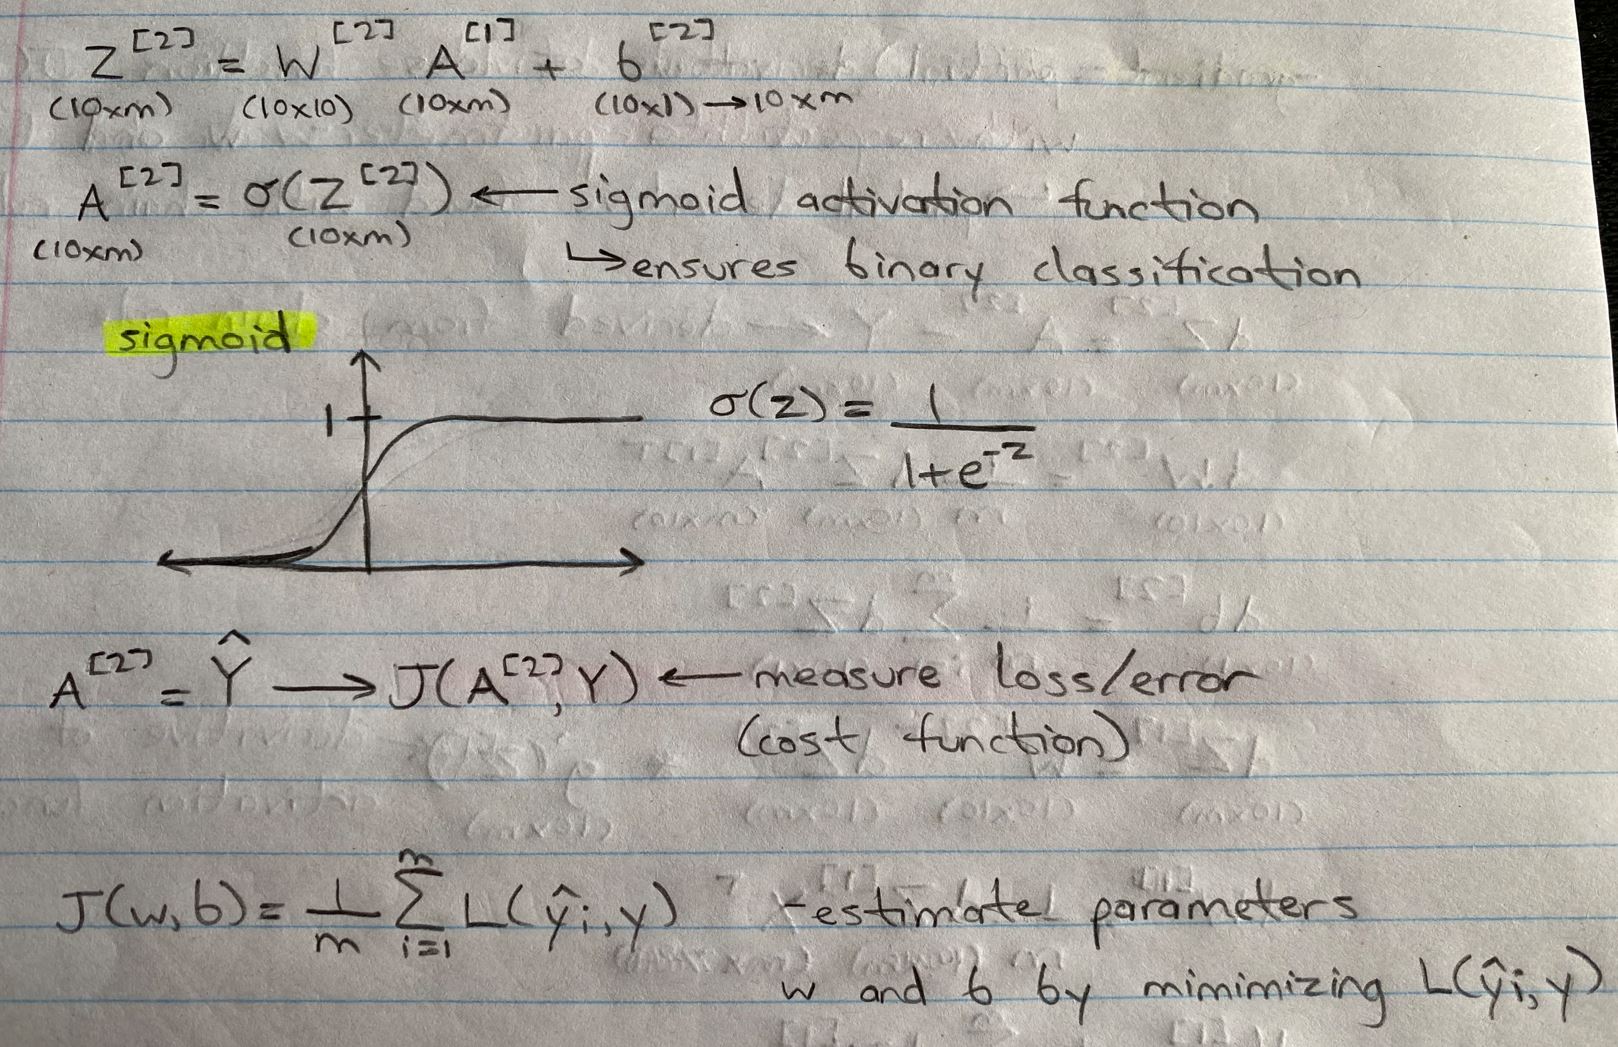 Z^[2] = W^[2] A^[1] + b^[2]
(10xm) (10x10) (10xm) (10x1) → 10xm
A^[2] = σ(Z^[2]) ← sigmoid activation function
(10xm) (10xm)
↳ ensures binary classification
sigmoid
1
σ(z) = 1 / (1+e^-z)
A^[2] = Ŷ → J(A^[2], Y) ← measure loss/error
(cost function)
J(w,b) = 1/m Σ_{i=1}^{m} L(ŷi, y) - estimate parameters
w and b by mimimizing L(ŷi, y)